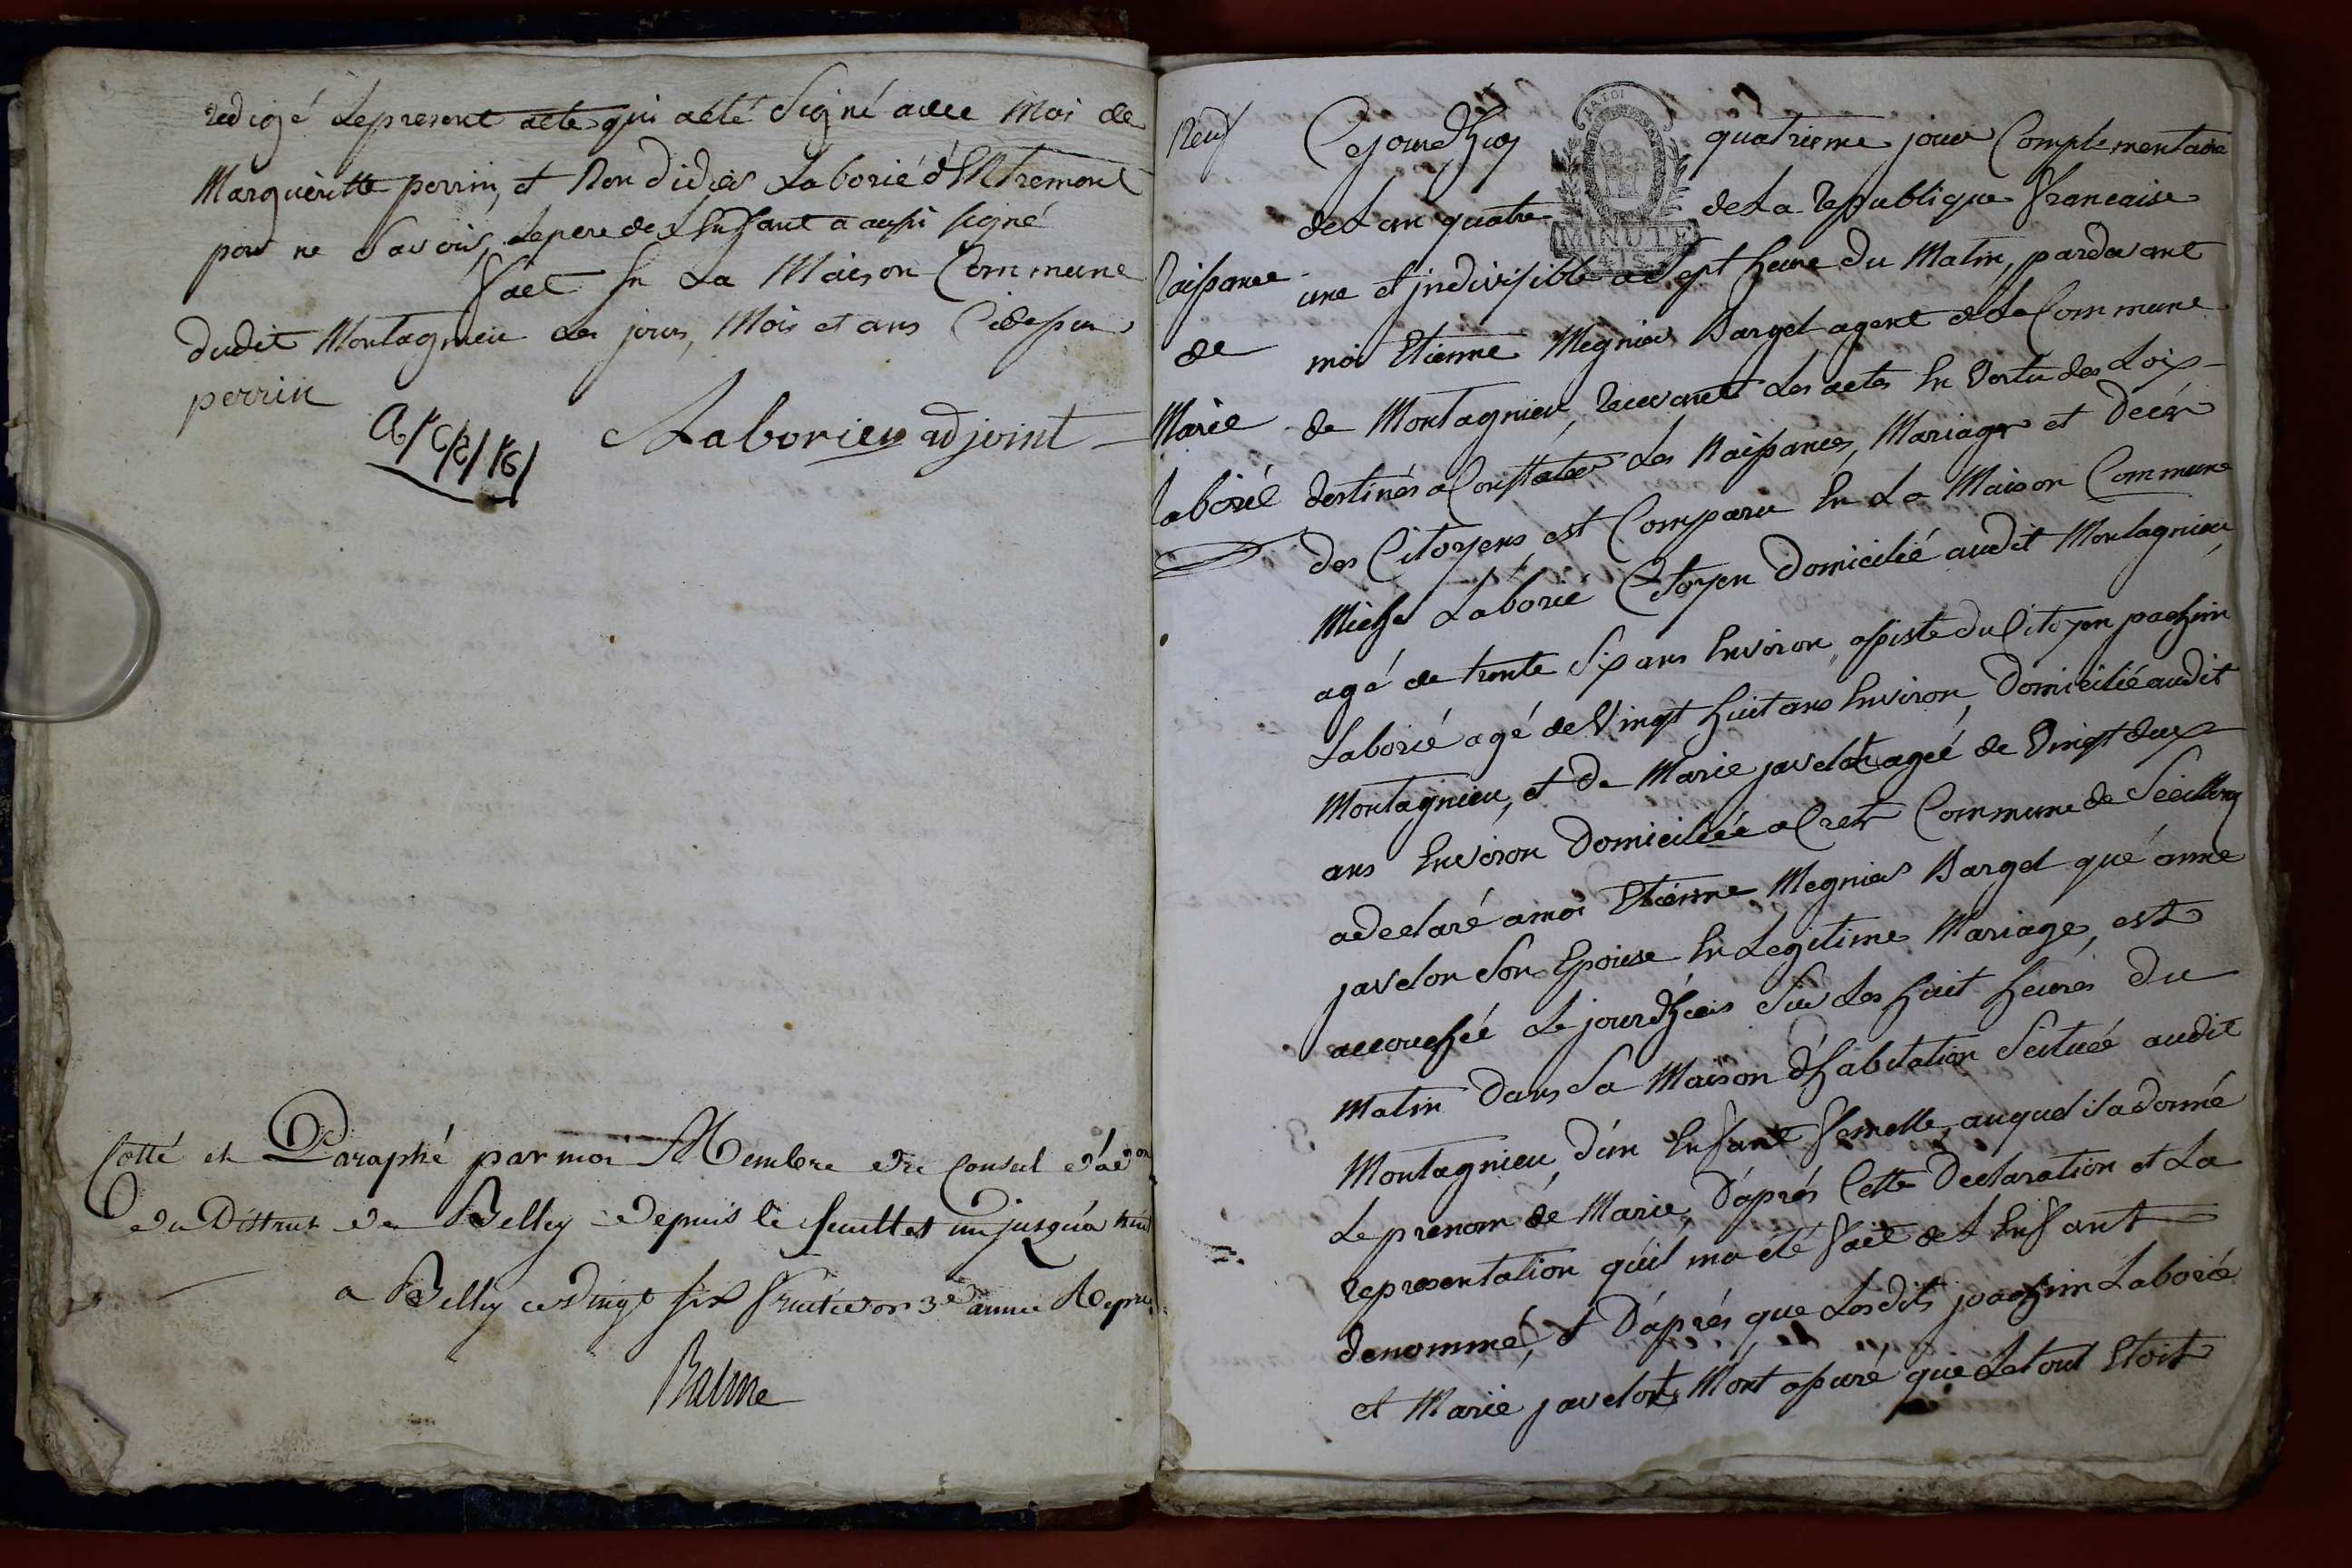 redigé Le present acte qui a été Signé avec Moi de
Margueritte perrin, et Non didier Laborié d'Entremont
pour ne Savoir, Le pere de L'Enfant a aussi signé
fait En La Maison Commune
dudit Montagnieu Les jour, Mois et ans Cidessus
perrin
Laborier adjoint
Cotté et Paraphé par moi Membre du Conseil d'adon
du District de Belley Depuis le feuillet un jusqu'a
a Belley ce Vingt six fructidor 3e année Repu
Balme
Neuf
Naissance
de
Marie
laborié
LA LOI
MINUTE
Cejourd'huy quatrieme jour Complementaire
de L'an quatre de La republique francaise
une et jndivisible a Sept heure du Matin, pardevant
moi Etienne Megnier Barget agent de La Commune
de Montagnieu, recevant Les actes En Vertu des Loix
destinés a Constater Les Naissances, Mariages et Décès
des Citoyens est Comparu En La Maison Commune
Michel Laborié Citoyen Domicilié audit Montagnieu
agé de trente Six ans Environ, assisté du Citoyen joachim
Laborié agé de Vingt huit ans Environ, Domicilié audit
Montagnieu, et de Marie javelot agéé de Vingt deux
ans Environ Domiciliéé a Crept Commune de Seillonaz
a declaré a moi Etienne Megnier Barget que anne
javelon Son Epouse En Legitime Mariage, est
accouchéé Le jourd'huis Sur Les huit heures du
Matin Dans Sa Maison d'habitation Scituéé audit
Montagnieu d'un Enfant femelle, auquel il a donné
Le prenom de Marie, D'aprés Cette Declaration et La
representation qu'il ma été fait de L'Enfant
denommé, et D'aprés que Lesdits joachim Laborié
et Marie javelot Mont assuré que Le tout Etoit